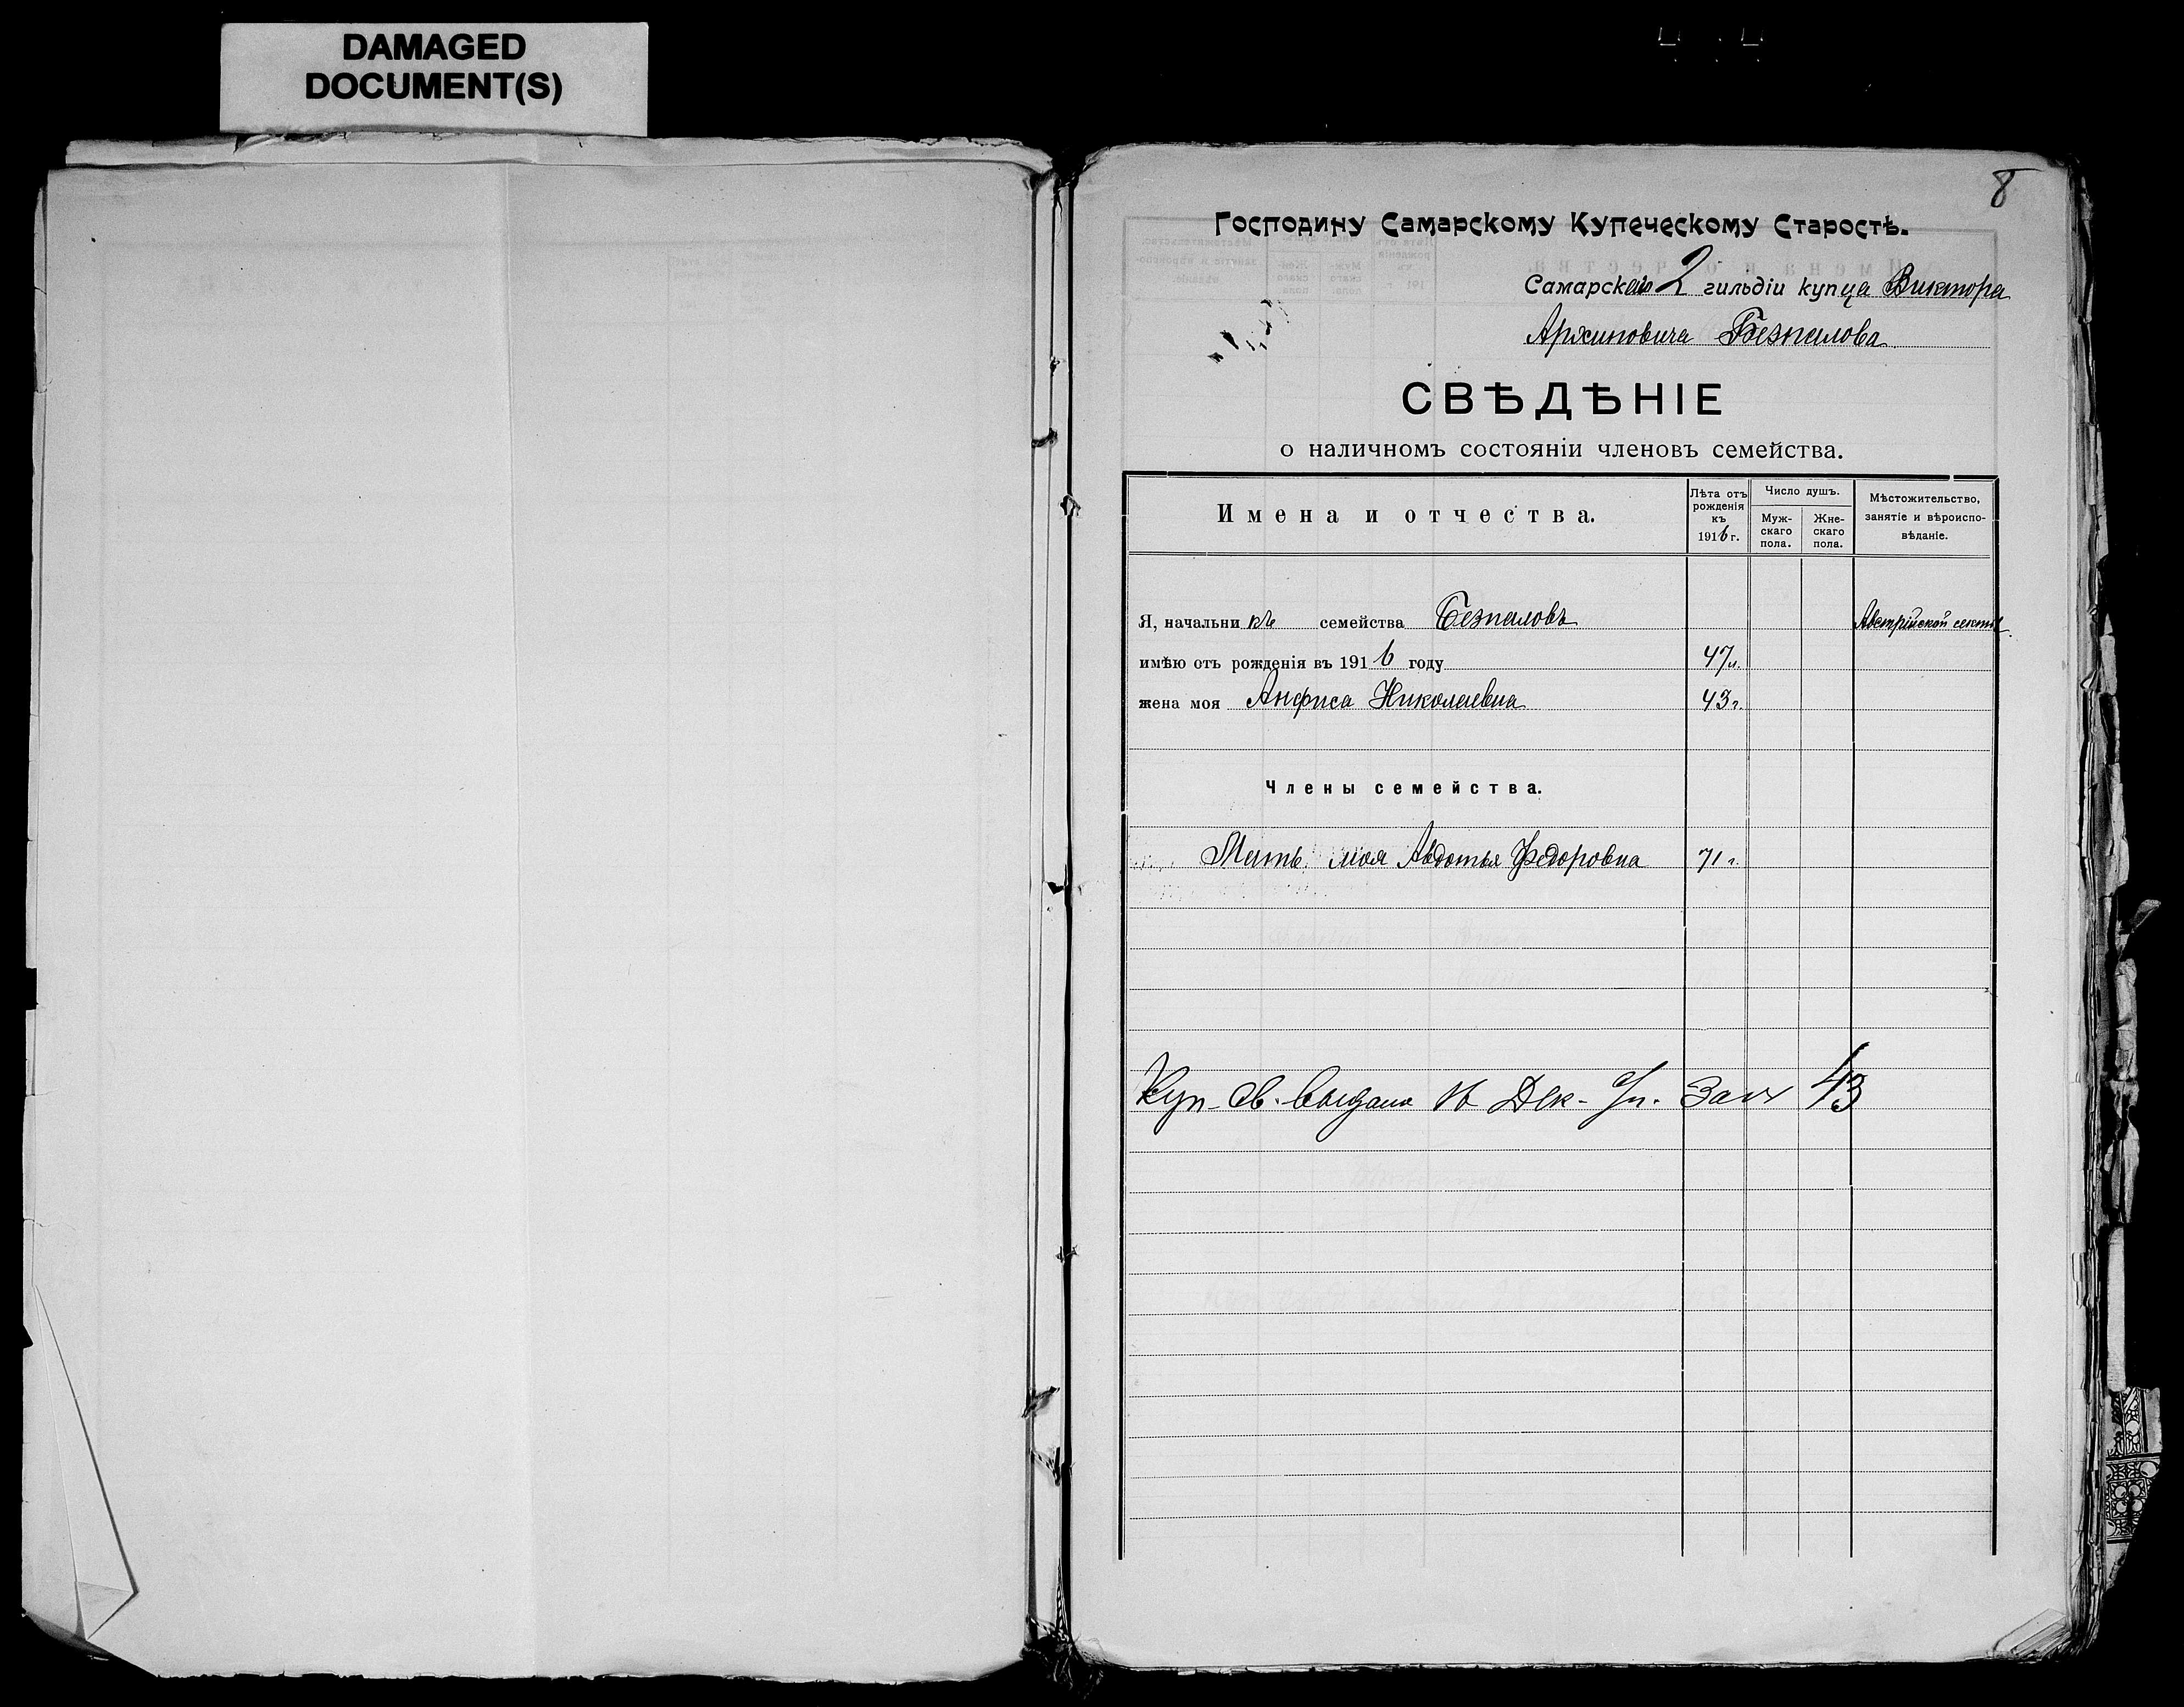 DAMAGED
DOCUMENT(S)
8
Господину Самарскому Купеческому Старостѣ.
Самарскаго 2 гильдіи купца Виктора
Архиповича Безпалова
СВѢДѢНІЕ
о наличномъ состояніи членовъ семейства.
Имена и отчества.
Лѣта отъ рожденія къ 1916 г.
Число душъ.
Муж-скаго пола.
Жне-скаго пола.
Мѣстожительство, занятіе и вѣроиспо-вѣданіе.
Я, начальникъ семейства Безпаловъ Австрійской секты
имѣю отъ рожденія въ 1916 году 47 л.
жена моя Анфиса Николаевна 43 г.
Члены семейства.
Мать моя Авдотья Федоровна 71 г.
Куп. св. выдано 16 Дек. 43